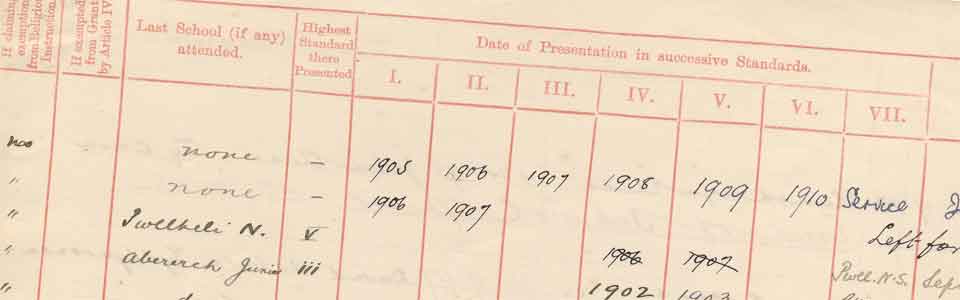 If claiming exemption from Religious Instruction.
If exempted from Grant by Article IV
Last School (if any) attended.
Highest Standard there Presented
Date of Presentation in successive Standards.
I. II. III. IV. V. VI. VII.
none – 1905 1906 1907 1908 1909 1910 Service
" none – 1906 1907 Left for
" Pwllheli N. V
" Abererch Junior iii 1906 1907 Pwll. N.S. Sep
" 1902 1903